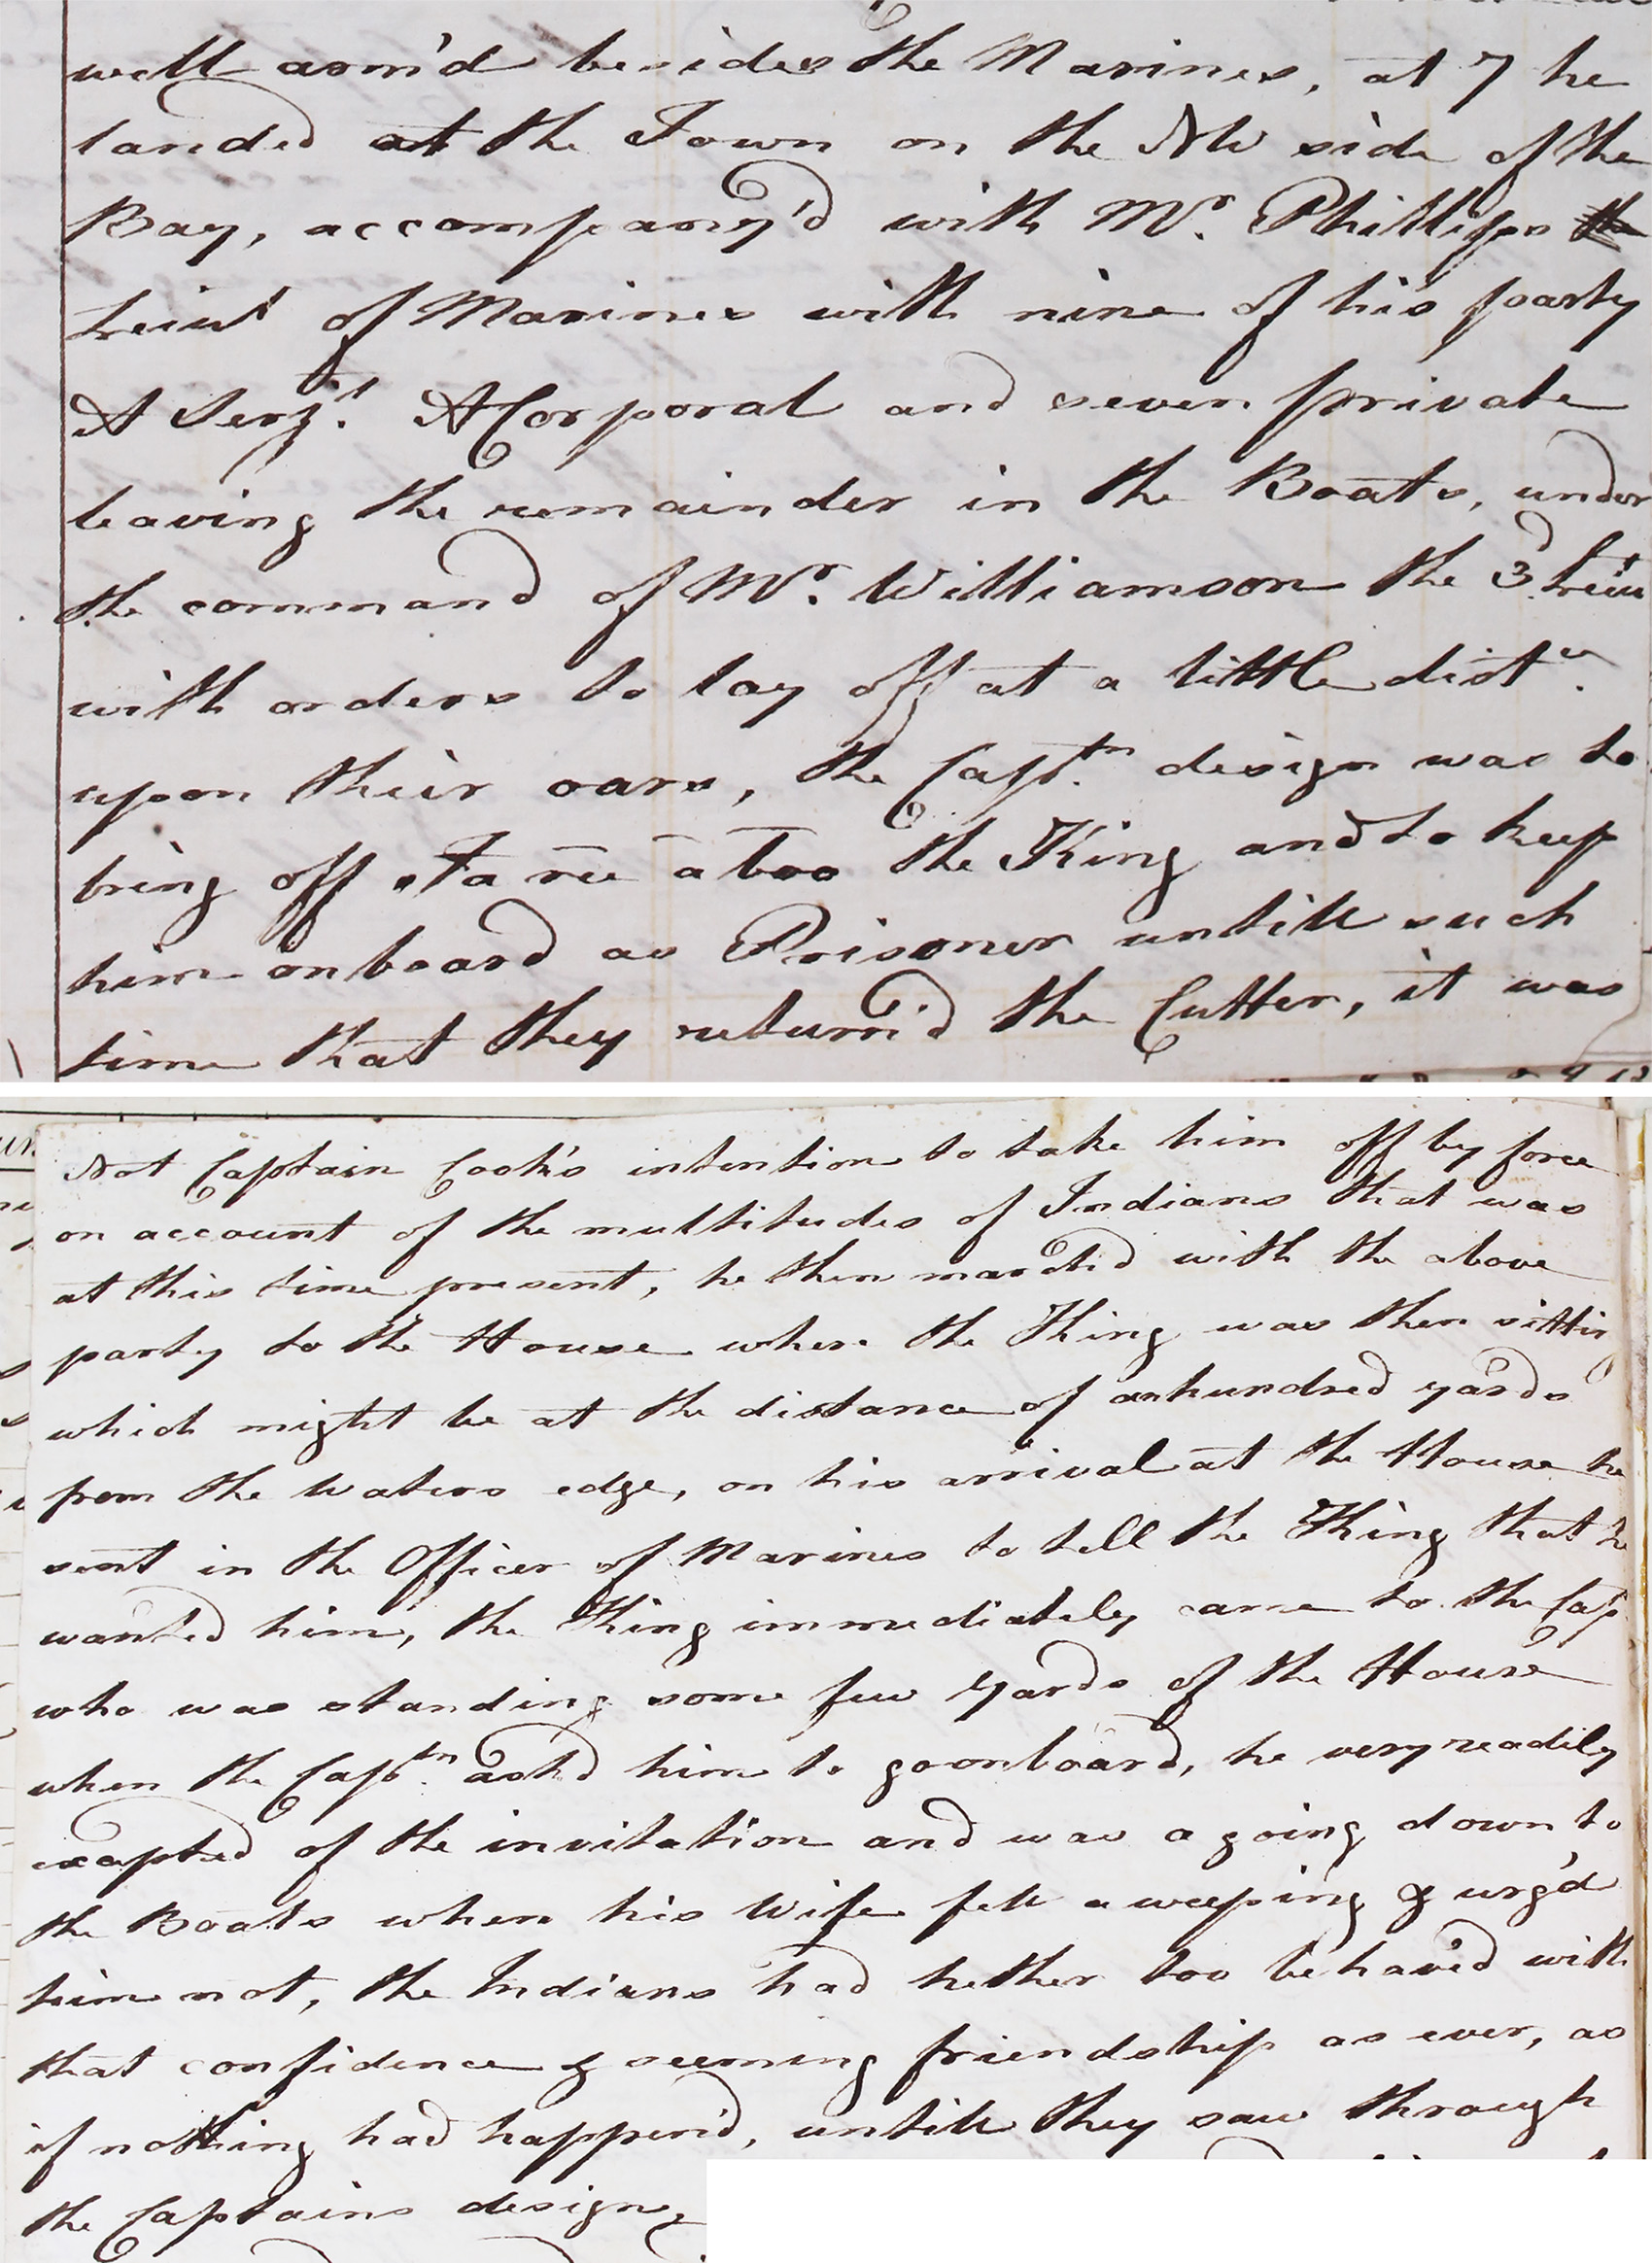 well arm'd besides the Marines, at 7 he
landed at the Town on the NW side of the
Bay, accompany'd with Mr. Phillips
Leiut of Marines with nine of his party
A Serjt. A Corporal and seven private
leaving the remainder in the Boats, under
the command of Mr. Williamson the 3d Leiut
with orders to lay off at a little distce.
upon their oars, the Captn. design was to
bring off Taree a boo the King and to keep
him onboard as Prisoner untill such
time that they return'd the Cutter, it was
Not Captain Cook's intention to take him off by force
on account of the multitudes of Indians that was
at this time present, he then march'd with the above
party to the House where the King was then sitting
which might be at the distance of an hundred yards
from the Waters edge, on his arrival at the House he
sent in the Officer of Marines to tell the King that he
wanted him, the King immediately came to the Cap
who was standing some few Yards of the House
when the Captn. ask'd him to go onboard, he very readily
excepted of the invitation and was a going down to
the Boats when his Wife fell a weeping & urg'd
him not, the Indians had hether too behav'd with
that confidence & seeming friendship as ever, as
if nothing had happen'd, untill they saw through
the Captains design,